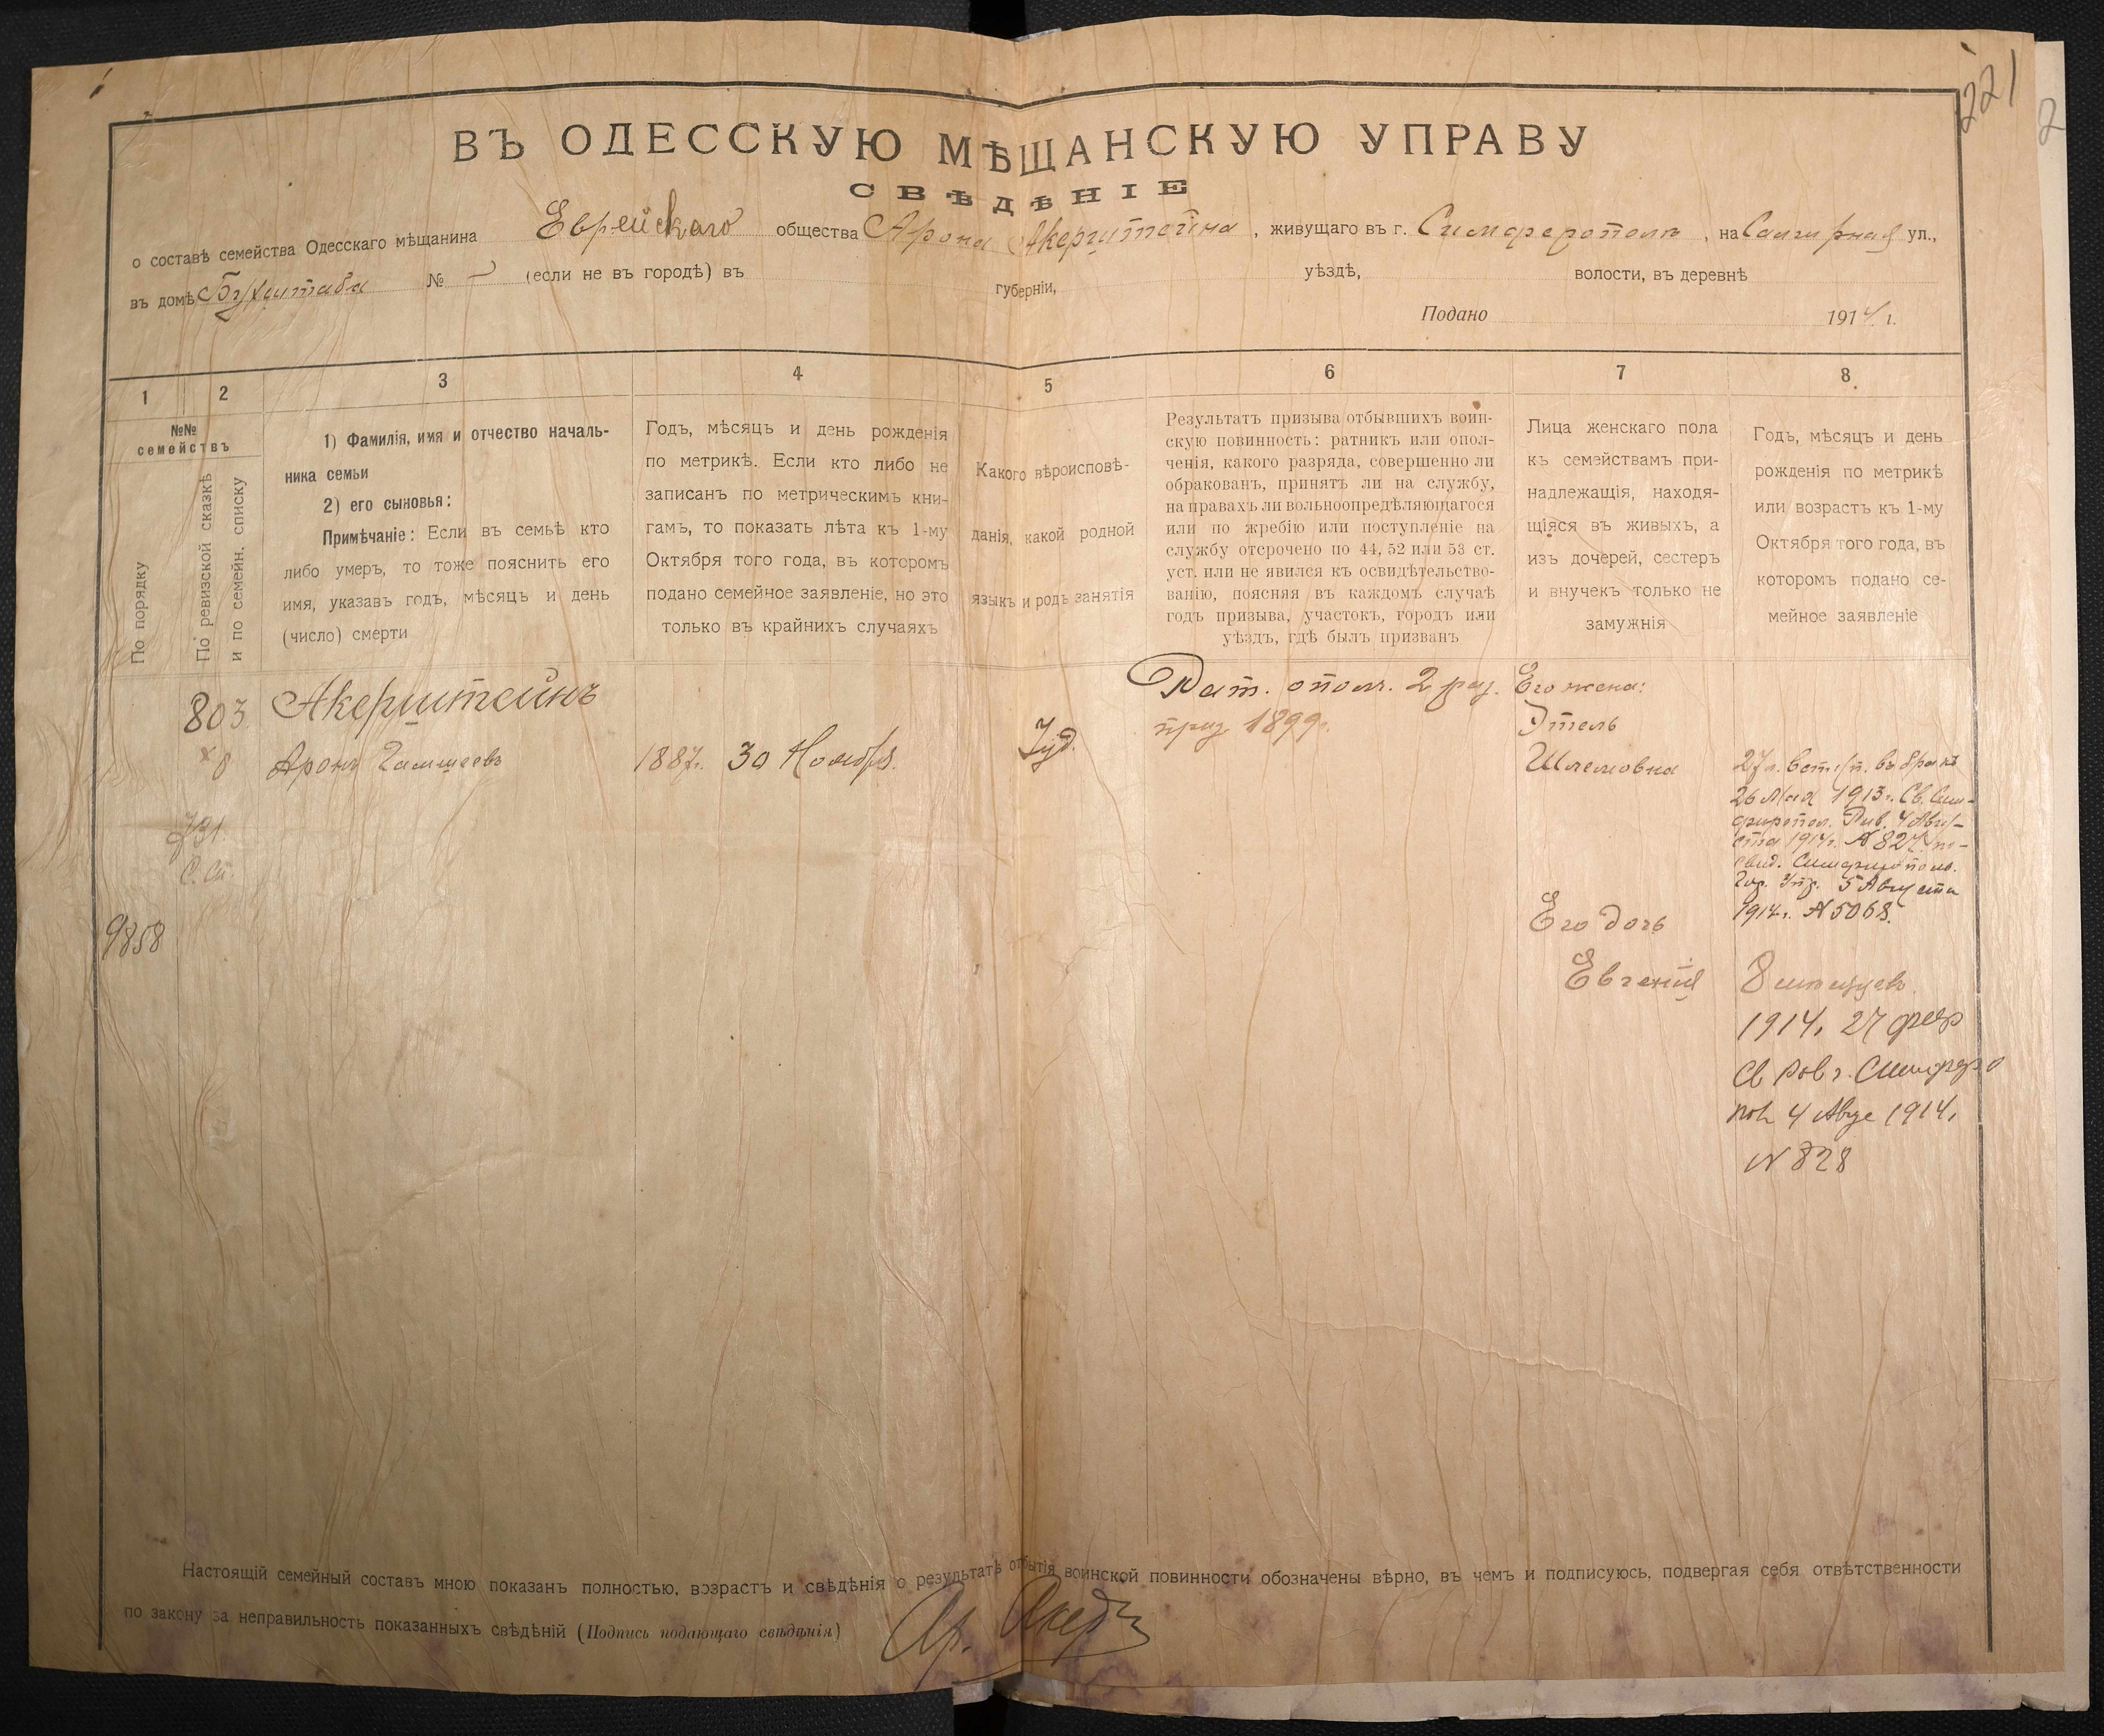 221
2
ВЪ ОДЕССКУЮ МѢЩАНСКУЮ УПРАВУ
СВѢДѢНІЕ
о составѣ семейства Одесскаго мѣщанина Еврейскаго общества Арона Акерштейна, живущаго въ г. Симферополѣ, на Салгирной ул.,
въ домѣ Бухштаба № — (если не въ городѣ) въ губерніи, уѣздѣ, волости, въ деревнѣ
Подано 1914 г.
1 2 3 4 5 6 7 8
№№ семействъ
По порядку
По ревизской сказкѣ
и по семейн. списку
1) Фамилія, имя и отчество началь-
ника семьи
2) его сыновья:
Примѣчаніе: Если въ семьѣ кто
либо умеръ, то тоже пояснить его
имя, указавъ годъ, мѣсяцъ и день
(число) смерти
Годъ, мѣсяцъ и день рожденія
по метрикѣ. Если кто либо не
записанъ по метрическимъ кни-
гамъ, то показать лѣта къ 1-му
Октября того года, въ которомъ
подано семейное заявленіе, но это
только въ крайнихъ случаяхъ
Какого вѣроисповѣ-
данія, какой родной
языкъ и родъ занятія
Результатъ призыва отбывшихъ воин-
скую повинность: ратникъ или опол-
ченія, какого разряда, совершенно ли
обракованъ, принятъ ли на службу,
на правахъ ли вольноопредѣляющагося
или по жребію или поступленіе на
службу отсрочено по 44, 52 или 53 ст.
уст. или не явился къ освидѣтельство-
ванію, поясняя въ каждомъ случаѣ
годъ призыва, участокъ, городъ или
уѣздъ, гдѣ былъ призванъ
Лица женскаго пола
къ семействамъ при-
надлежащія, находя-
щіяся въ живыхъ, а
изъ дочерей, сестеръ
и внучекъ только не
замужнія
Годъ, мѣсяцъ и день
рожденія по метрикѣ
или возрастъ къ 1-му
Октября того года, въ
которомъ подано се-
мейное заявленіе
803
х 8
731.
С. сп.
9858
Акерштейнъ
Аронъ
1887г. 30 Ноября.
Іуд.
Рат. ополч. 2 раз.
приз. 1899г.
Его жена:
Этель
Шлемовна
27 л. вступ. въ бракъ
26 Мая 1913г. Св. Сим-
фероπол. Рав. 4 Авгу-
ста 1914г. № 827 и
свид. Симферопол.
Гор. Упр. 5 Августа
1914г. № 5068.
Его дочь
Евгенія
8 мѣсяцевъ
1914. 27 фев
Св Рав г. Симферо
пол 4 Авгус 1914.
№ 828
Настоящій семейный составъ мною показанъ полностью, возрастъ и свѣдѣнія о результатѣ отбытія воинской повинности обозначены вѣрно, въ чемъ и подписуюсь, подвергая себя отвѣтственности
по закону за неправильность показанныхъ свѣдѣній (Подпись подающаго свѣдѣнія)